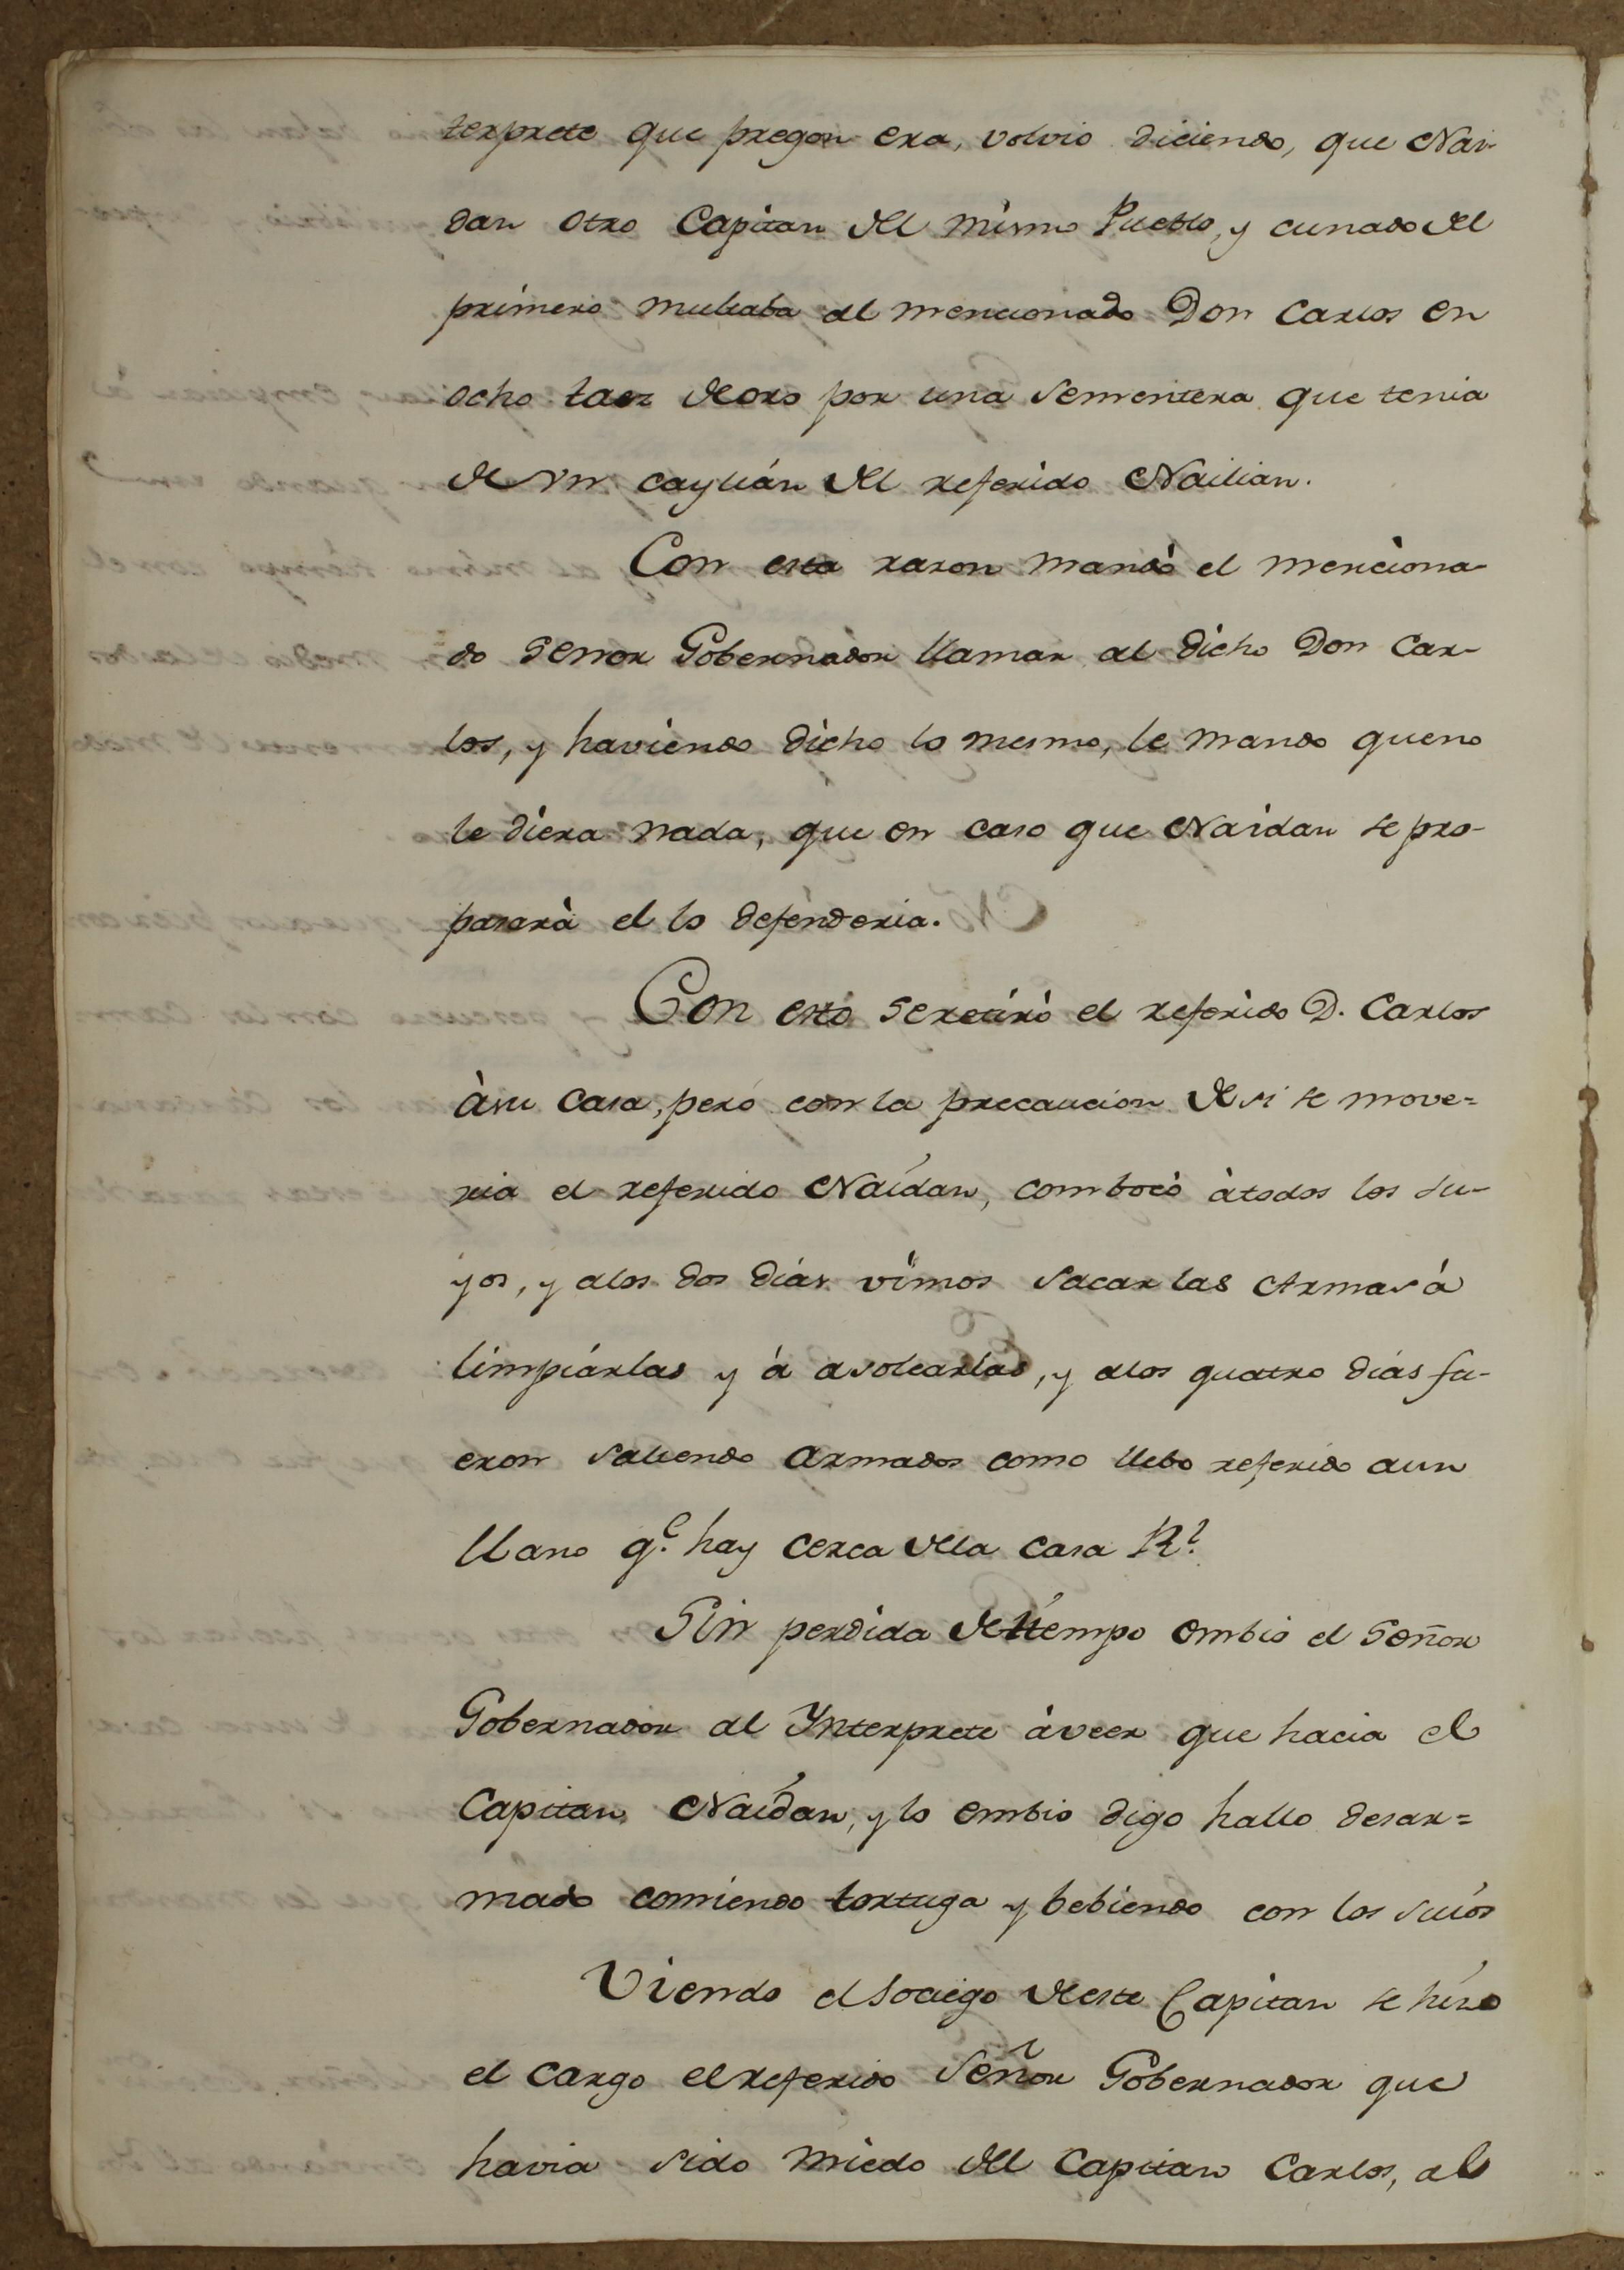 terprete que pregon era, volvio diciendo, que Nai-
dan otro Capitan del mismo Pueblo, y cunado del
primero multaba al mencionado Don Carlos en
ocho taez de oro por una sementera que tenia
de un caylián del referido Nailian.
Con esta razon mandò el menciona-
do Senor Gobernador llamar al dicho Don Car-
los, y haviendo dicho lo mesmo, le mando que no
le diera nada, que en caso que Naidan se pro-
pasarà el lo defenderia.
Con esto se retirò el referido D. Carlos
à su casa, però con la precaucion de si se move=
ria el referido Naídan, combocò à todos los su-
yos, y a los dos dias vimos sacar las Armas à
limpiárlas y à asolearlas, y a los quatro dias fu-
eron saliendo armados como llebo referido a un
llano q.e hay cerca de la casa R.l
Sin perdida de tiempo embio el Señor
Gobernador al Ynterprete à veer que hacia el
Capitan Naídan, y lo embio digo hallo desar=
mado comiendo tortuga y bebiendo con los suios
Viendo el Sociego de este Capitan se hizo
el cargo el referido Señor Gobernador que
havia sido miedo del Capitan Carlos, al